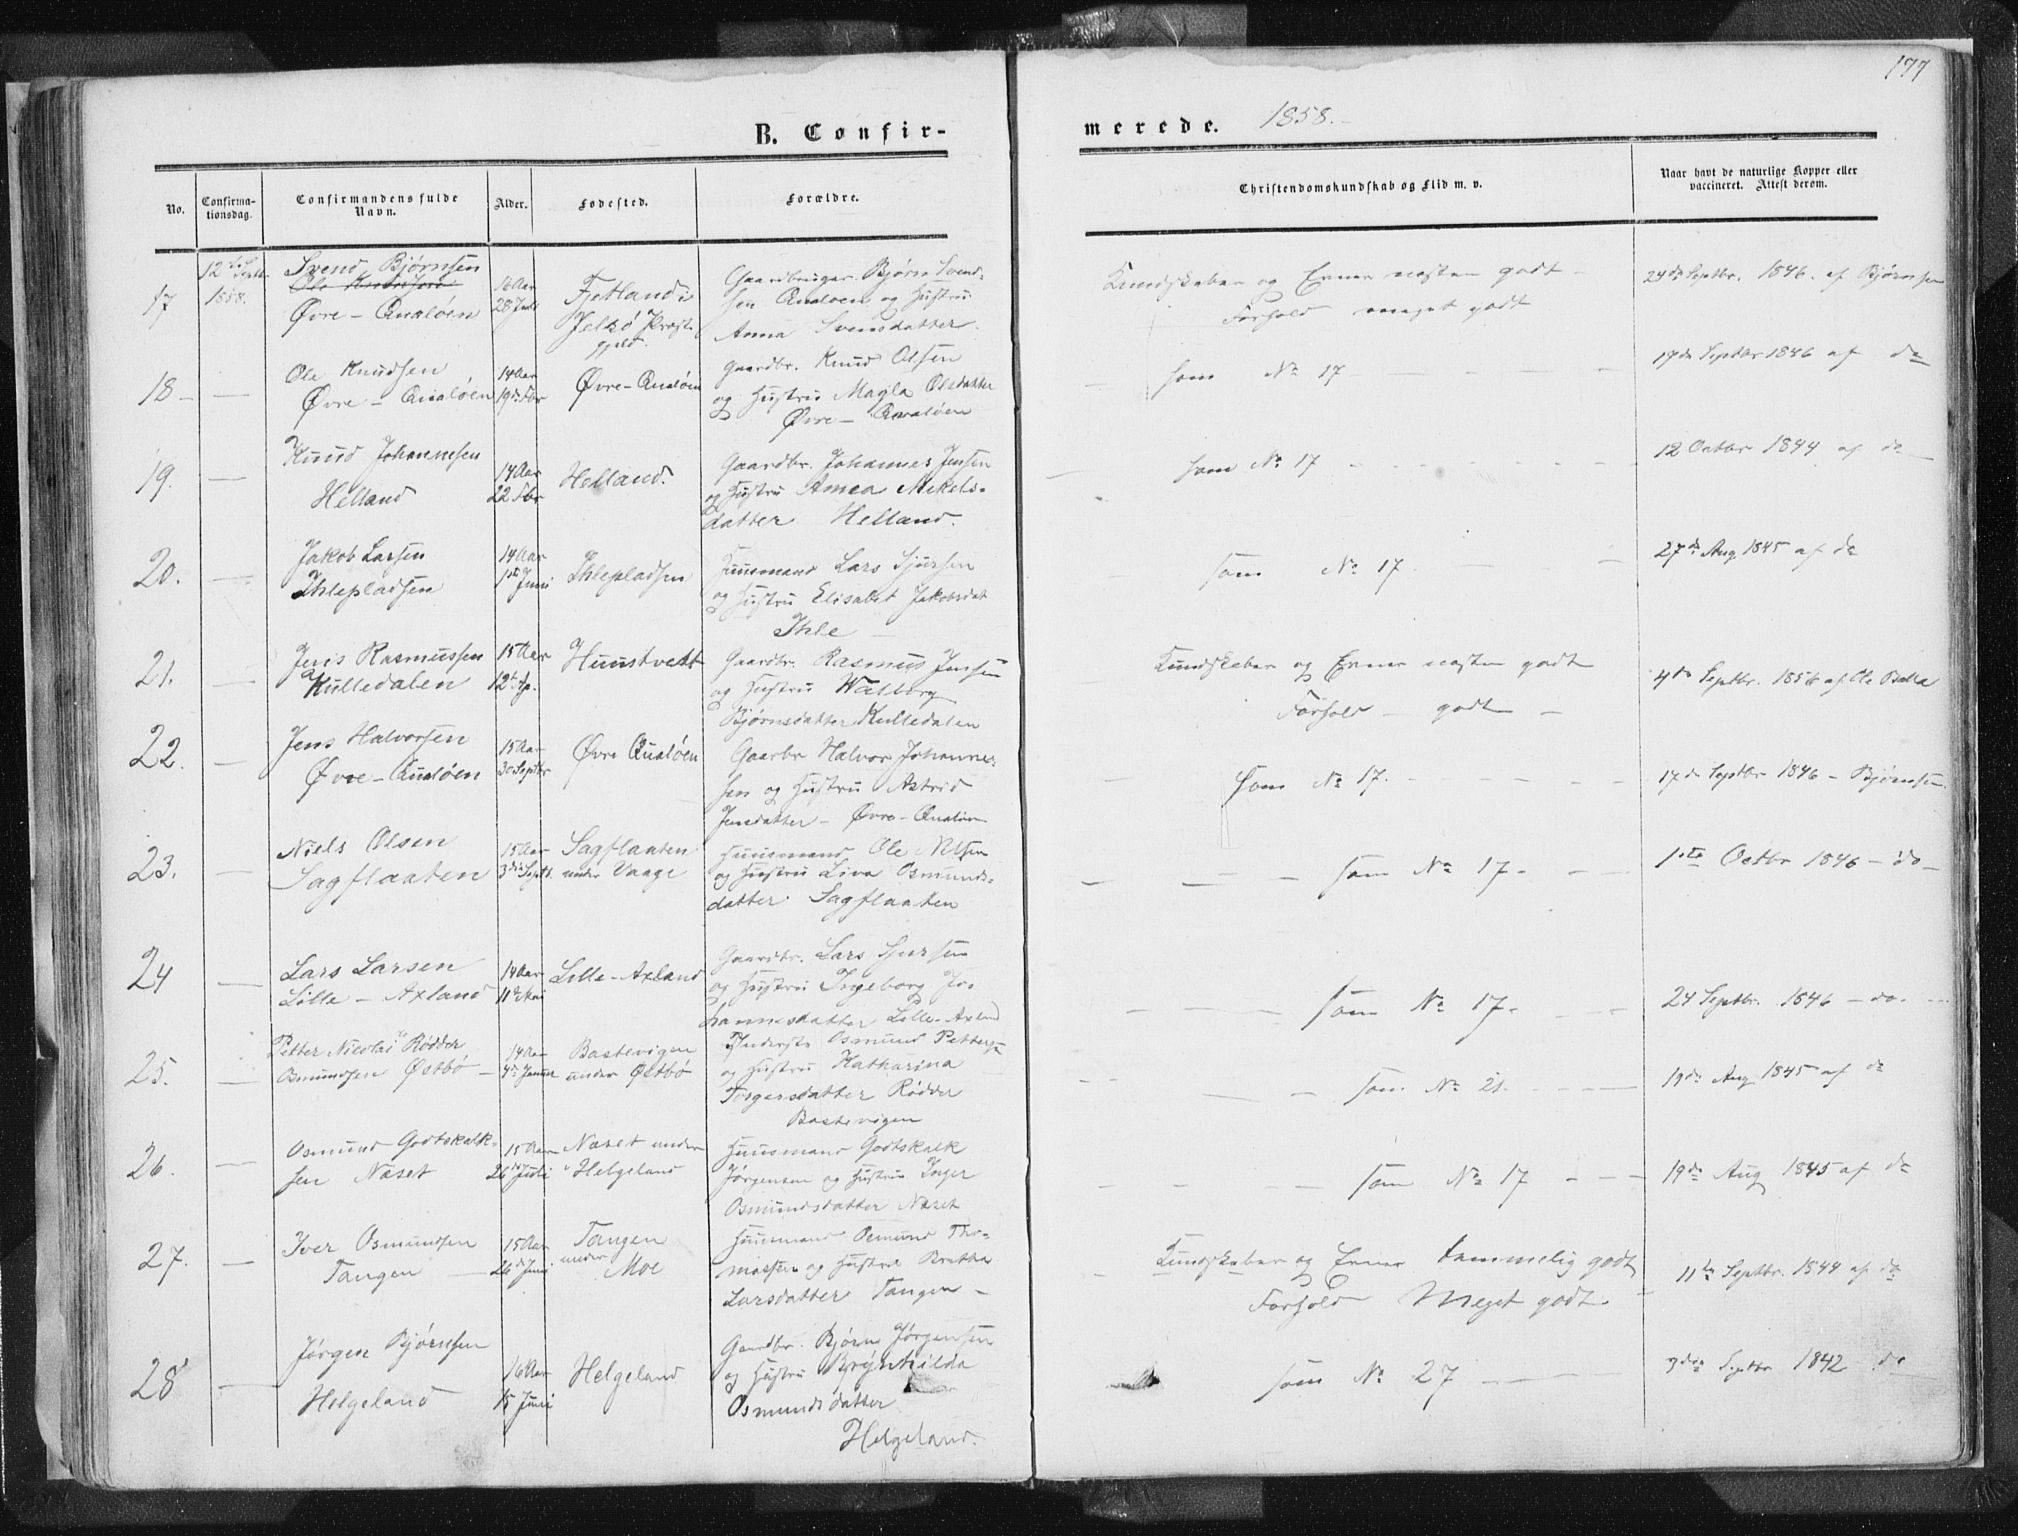 177
B. Confir-
merede. 1858.
No.
Confirma-
tionsdag.
Confirmandens fulde
Navn.
Alder.
Fødested.
Forældre.
Christendomskundskab og Flid m. v.
Naar havt de naturlige Kopper eller
vaccineret. Attest derom.
17
12te Septb.
1858.
Svend Bjørnsen
Øvre - Qualøen
16 Aar
28 Juli
Fjetland i
Jelsø Præst
gjeld.
Gaardbruger Bjørn Svend-
sen Qualøen og Hustru
Anna Svensdatter
Kundskaber og Evner næsten godt -
Forhold meget godt
24de Septbr. 1846. af Bjørnsen
18 -
Ole Knudsen
Øvre - Qualøen
14 Aar
19de Fbr
Øvre-Qualøen
Gaardbr. Knud Olsen
og Hustru Magla Olsdatter
Øvre - Qvaløen
som No 17
17de Septbr 1846 af do
19.
Knud Johannesen
Helland
14 Aar
22 Fbr
Helland.
Gaardbr. Johannes Jensen
og Hustru Amea Mikels-
datter Helland.
som No 17
12 Octbr 1844 af do
20.
Jakob Larsen
Ihlepladsen
14 Aar
1ste Juni
Ihlepladsen
Huusmand Lars Sjursen
og Hustru Elisabet Jakobsdat
Ihle
som No 17
27de Aug 1845 af do
21.
Jens Rasmussen
Kulledalen
15 Aar
12te Ap.
Huustvett
Gaardbr. Rasmus Jensen
og Hustru Walborg
Bjørnsdatter Kulledalen
Kundskaber og Evner næsten godt
Forhold - godt -
4de Septbr. 1856 af Ole Bella
22.
Jens Halvorsen
Øvre - Qualøen
15 Aar
30 Septbr
Øvre Qualøen
Gaarbr Halvor Johannes-
sen og Hustru Astrid
Jensdatter - Øvre-Qualøen
Som No 17.
17de Septbr 1846 - Bjørnsen
23.
Niels Olsen
Sagflaaten
15 Aar
3die Septb.
Sagflaaten
under Vaage
Huusmand Ole Nilsen
og Hustru Liva Osmunds-
datter Sagflaaten
som No 17.
1ste Octbr 1846 - do -
24
Lars Larsen
Lille - Axland
14 Aar
11te Mai
Lille-Axland
Gaardbr. Lars Sjursen
og Hustru Ingeborg Jo-
hannesdatter Lille-Axland
som No 17.
24 Septbr. 1846 - do.
25.
Petter Nicolai Rødder
Osmundsen Østbø -
14 Aar
4de Januar
Bastevigen
under Østbø
Inderste Osmund Petters
og Hustru Katharina
Torgersdatter Rødder
Bastevigen
som No 21.
19de Aug 1845 af do
26.
Osmund Godtskalk-
sen Næset
15 Aar
26de Juli
Næset under
Helgeland
Huusmand Godtskalk
Jørgensen og Hustru Inger
Osmundsdatter Næset
som No 17
19de Aug 1845 af do
27.
Iver Osmundsen
Tangen
15 Aar
26de Juni
Tangen
under
Moe
Huusmand Osmund Tho-
massen og Hustru Bretha
Larsdatter Tangen -
Kundskaber og Evner temmelig godt
Forhold Meget godt.
11te Septbr. 1844 af do
28
Jørgen Bjørnsen
Helgeland
16 Aar
15 Juni
Helgeland
Gaardbr. Bjørn Jørgensen
og Hustru Brynhilda
Osmundsdatter
Helgeland.
som No 27
3die Septbr 1842 do